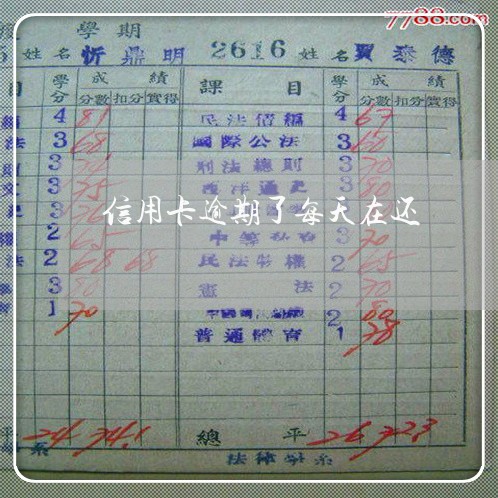 7788.com
學期
姓名 忻鼎明 2616 姓名 賈泰德
目 學分 成績 課目 學分 成績
分數 扣分 實得 分數 扣分 實得
4 81 民法債編 4 67
法 3 68 國際公法 3 60
則 3 刑法總則 3 70
3 75 西洋通史 3 80
3
信用卡逾期了每天在还
2 65 3 70
法 2 68 68 民法物權 2 65
3 80 憲法 2 70
1 70 2 80
普通體育 1 78
平 24 74.1 總平 26 72.3
系 法律學系